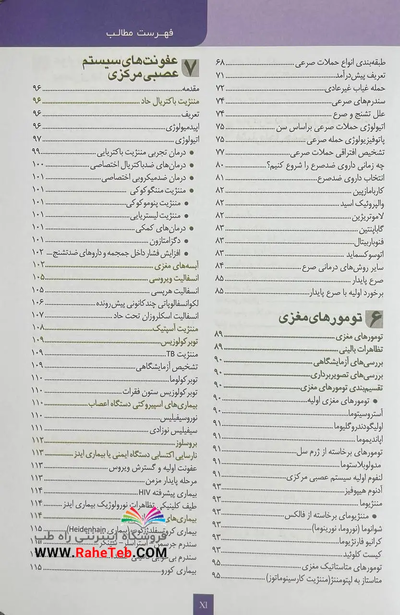 فهرست مطالب
طبقه‌بندی انواع حملات صرعی ۶۸
تعریف پیش‌درآمد ۷۱
حمله غیاب غیرعادی ۷۲
سندرم‌های صرعی ۷۴
علل تشنج و صرع ۷۴
اتیولوژی حملات صرعی براساس سن ۷۵
پاتوفیزیولوژی حمله صرعی ۷۵
تشخیص افتراقی حملات صرعی ۷۷
چه زمانی داروی ضدصرع را شروع کنیم؟ ۸۰
انتخاب داروی ضدصرع ۸۱
کاربامازپین ۸۲
والپروئیک اسید ۸۲
لاموتریژین ۸۲
گاباپنتین ۸۳
فنوباربیتال ۸۳
اتوسوکسماید ۸۳
سایر روش‌های درمانی صرع ۸۴
صرع پایدار ۸۵
برخورد اولیه با صرع پایدار ۸۵
۶ تومورهای مغزی
تومورهای مغزی ۸۹
تظاهرات بالینی ۸۹
بررسی‌های آزمایشگاهی ۹۰
بررسی‌های تصویربرداری ۹۰
تقسیم‌بندی تومورهای مغزی ۹۰
• تومورهای مغزی اولیه ۹۰
آستروسیتوما ۹۰
اولیگودندروگلیوما ۹۱
اپاندیموما ۹۱
تومورهای برخاسته از ژرم سل ۹۱
مدولوبلاستوما ۹۱
لنفوم اولیه سیستم عصبی مرکزی ۹۲
آدنوم هیپوفیز ۹۲
مننژیوما ۹۲
• مننژیومای برخاسته از فالکس ۹۲
شوانوما (نوروما، نورینوما) ۹۲
کرانیو فارنژیوما ۹۲
کیست کلوئید ۹۲
تومورهای متاستاتیک مغزی ۹۲
متاستاز به لپتومننژ(مننژیت کارسینوماتوز) ۹۲
۷ عفونت‌های سیستم
عصبی مرکزی
مقدمه ۹۶
مننژیت باکتریال حاد ۹۶
تعریف ۹۶
اپیدمیولوژی ۹۶
اتیولوژی ۹۷
• درمان تجربی مننژیت باکتریایی ۹۹
• درمان‌های ضدباکتریال اختصاصی ۱۰۰
• درمان ضدمیکروبی اختصاصی ۱۰۱
• مننژیت مننگوکوکی ۱۰۱
• مننژیت پنوموکوکی ۱۰۱
• مننژیت لیستریایی ۱۰۱
• درمان‌های کمکی ۱۰۱
• دگزامتازون ۱۰۱
• افزایش فشار داخل جمجمه و داروهای ضدتشنج ۱۰۲
آبسه‌های مغزی ۱۰۳
انسفالیت ویروسی ۱۰۵
انسفالیت هرپسی ۱۰۵
لکوانسفالوپاتی چندکانونی پیش‌رونده ۱۰۶
انسفالیت اسکلروزان تحت حاد ۱۰۷
مننژیت آسپتیک ۱۰۸
توبرکولوزیس ۱۰۹
مننژیت TB ۱۰۹
تشخیص آزمایشگاهی ۱۰۹
توبرکولوما ۱۱۰
توبرکولوزیس ستون فقرات ۱۱۰
بیماری‌های اسپیروکتی دستگاه اعصاب ۱۱۰
نوروسیفیلیس ۱۱۰
سیفیلیس نوزادی ۱۱۱
بروسلوز ۱۱۲
نارسایی اکتسابی دستگاه ایمنی یا بیماری ایدز ۱۱۳
عفونت اولیه و گسترش ویروس ۱۱۳
مرحله پایدار مزمن ۱۱۳
بیماری پیشرفته HIV ۱۱۳
طیف کلینیکی تظاهرات نورولوژیک بیماری ایدز ۱۱۴
بیماری‌های
بیماری (Heidenhain)
بیماری کورو ۱۱۵
فروشگاه اینترنتی راه طب
www.RaheTeb.com
XI